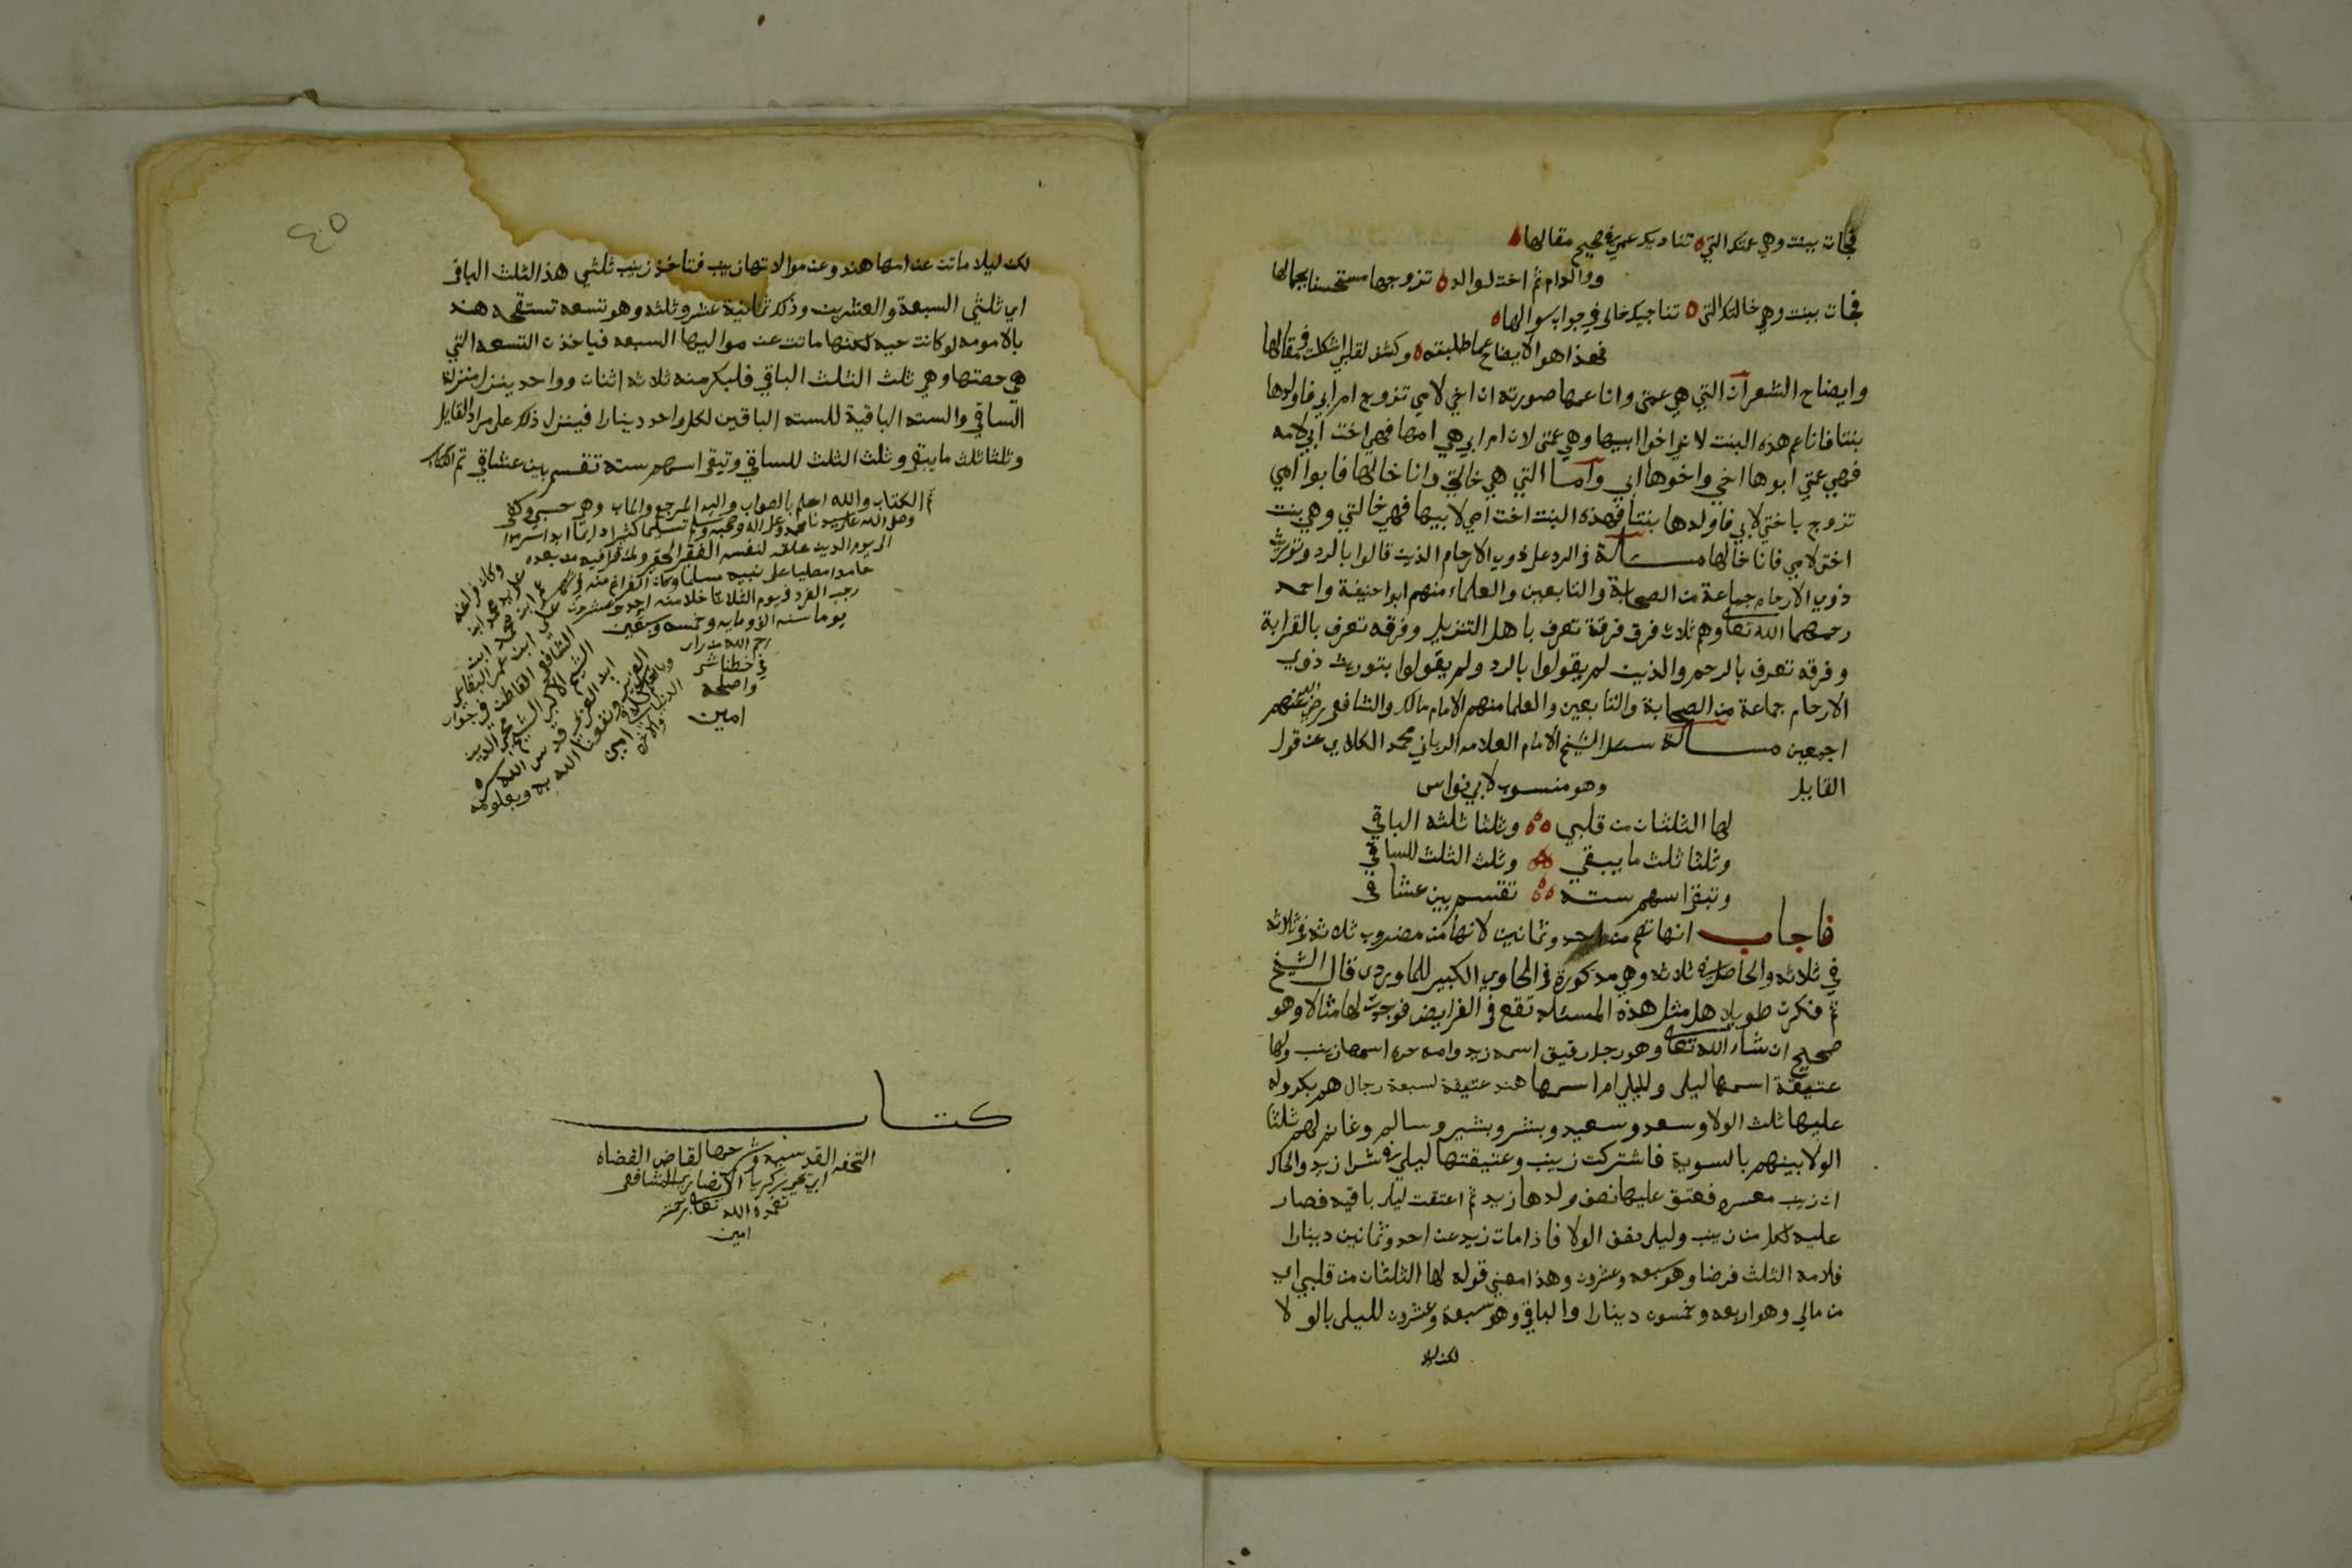 فجات ببنت وهي عمتك التي ه تناديك عمي في صحيح مقالها ه
ووالد ام ثم اخت لوالد ه تزوجها مستحسنا بجمالها
فجات ببنت وهي خالتك التي ه تناجيك خالي في جواب سوالها ه
فهذا هو الايضاح عما طلبته ه وكشف لقلب اشكلت في مقالها
وايضاح الشعر ان التي هي عمتي وانا عمها صورته ان اخي لامي تزوج ام ابي فاولدها
بنتا فانا عم هذه البنت لاني اخوا ابيها وهي عمتي لان ام ابي هي امها فهي اخت ابي لامه
فهي عمتي ابوها اخي واخوها ابي واما التي هي خالتي وانا خالها فابوا امي
تزوج باختي لابي فاولدها بنتا فهذه البنت اخت امي لابيها فهي خالتي وهي بنت
اختي لامي فانا خالها مسالة في الرد على ذوي الارحام الذين قالوا بالرد وتوريث
ذوي الارحام جماعة من الصحابة والتابعين والعلماء منهم ابوا حنيفة واحمد
رحمهما الله تعا وهم ثلاث فرق فرقة تعرف باهل التنزيل وفرقه تعرف بالقرابة
وفرقه تعرف بالرحم والذين لم يقولوا بالرد ولم يقولوا بتوريث ذوي
الارحام جماعة من الصحابة والتابعين والعلما منهم الامام مالك والشافعي رضي الله عنهم
اجمعين مسالة سئل الشيخ الامام العلامه الرباني محمد الكلاي عن قول
القايل وهو منسوب لابي نواس
لها الثلثان من قلبي ه وثلثا ثلثه الباقي
وثلثا ثلث ما يبقي ه وثلث الثلث للساقي
وتبقى اسهم سته ه تقسم بين عشاقي
فاجاب انها تصح من احد وثمانين لانها من مضروب ثلاثه في ثلاثه
في ثلاثه والحاصل في ثلاثه وهي مذكورة في الحاوي الكبير للماوردي قال الشيخ
ثم فكرت طويلا هل مثل هذه المسئله تقع في الفرايض فوجدت لها مثالا وهو
صحيح ان شاء الله تعا وهو رجل رقيق اسمه زيد وامه حره اسمها زينب ولها
عتيقة اسمها ليلى ولليلي ام اسمها هند عتيقة لسبعة رجال هم بكر وله
عليها ثلث الولا وسعد وسعيد وبشر وبشير وسالم وغانم لهم ثلثا
الولا بينهم بالسوية فاشتركت زينب وعتيقتها ليلي في شرا زيد والحال
ان زينب معسره فعتق عليها نصف ولدها زيد ثم اعتقت ليلى باقيه فصار
عليه لكل من زينب وليلى نصف الولا فاذا مات زيد عن احد وثمانين دينارا
فلامه الثلث فرضا وهو سبعه وعشرون وهذا معني قوله لها الثلثان من قلبي اي
من مالي وهو اربعه وخمسون دينارا والباقي وهو سبعة وعشرون لليلى بالولا
لكن ليلا
٤٥
لكن ليلا ماتت عن امها هند وعن موالاتها زينب فتاخذ زينب ثلثي هذا الثلث الباقي
اي ثلثي السبعة والعشرين وذلك ثمانية عشر وثلثه وهو تسعه تستحقه هند
بالامومه لو كانت حيه لكنها ماتت عن مواليها السبعه فياخذن التسعه التي
هي حصتها وهي ثلث الثلث الباقي فلبكر منه ثلاثه اثنان وواحد ينزل منزلة
الساقي والسته الباقية للسته الباقين لكل واحد دينارا فينزل ذلك على مراد القايل
وثلثا ثلث ما يبقى وثلث الثلث للساقي وتبقى اسهم سته تقسم بين عشاقي تم الكتاب
تم الكتاب والله اعلم بالصواب واليه المرجع والماب وهو حسبي وكفى
وصلى الله على سيدنا محمد وعلى اله وصحبه وسلم تسليما كثيرا دايما ابدا سرمدا
الى يوم الدين علقه لنفسه الفقير الحقير ولمن قرا فيه من بعده
حامدا مصليا على نبيه مسلما وكان الفراغ منه في شهر
رجب الفرد في يوم الثلاثا خلا منه احدى وعشرين
يوما سنه الف ومايه وخمسه وسبعين
رحم الله من راى
في خطنا شي
واصلحه
امين
وكان فراغه
على يد محمد ابن
عمر ابن محمد ابن
علي ابن عمر البقاعي
الشافعي القاطن في جوار
الشيخ الاكبر الشيخ محي الدين
ابن العربي قدس الله سره
العزيز ونفعنا الله به وبعلومه
امين
كتاب
التحفه القدسيه وشرحها لقاضي القضاه
ابي يحيى زكريا الانصاري الشافعي
تغمده الله تعا برحمته
امين